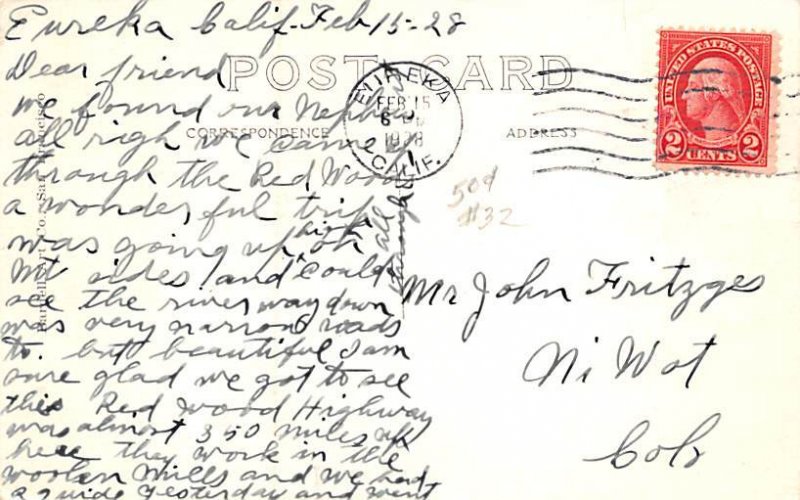 Eureka Calif. Feb 15-28
Dear friend
we found our Nephew
all righ we came
through the Red Wood
a wonderful trip
was going up high on
Mt sides and could
see the river way down
was very narrow roads
to. but beautiful I am
sure glad we got to see
this Red Wood Highway
was almost 350 miles up
here they work in the
woolen mills and we had
a guide yesterday and went
all
through
POST CARD
CORRESPONDENCE
ADDRESS
EUREKA
FEB 15
1928
CALIF.
UNITED STATES POSTAGE
2 CENTS 2
50¢
#32
Mr John Fritzges
Ni Wot
Colo
Art Co., San Francisco